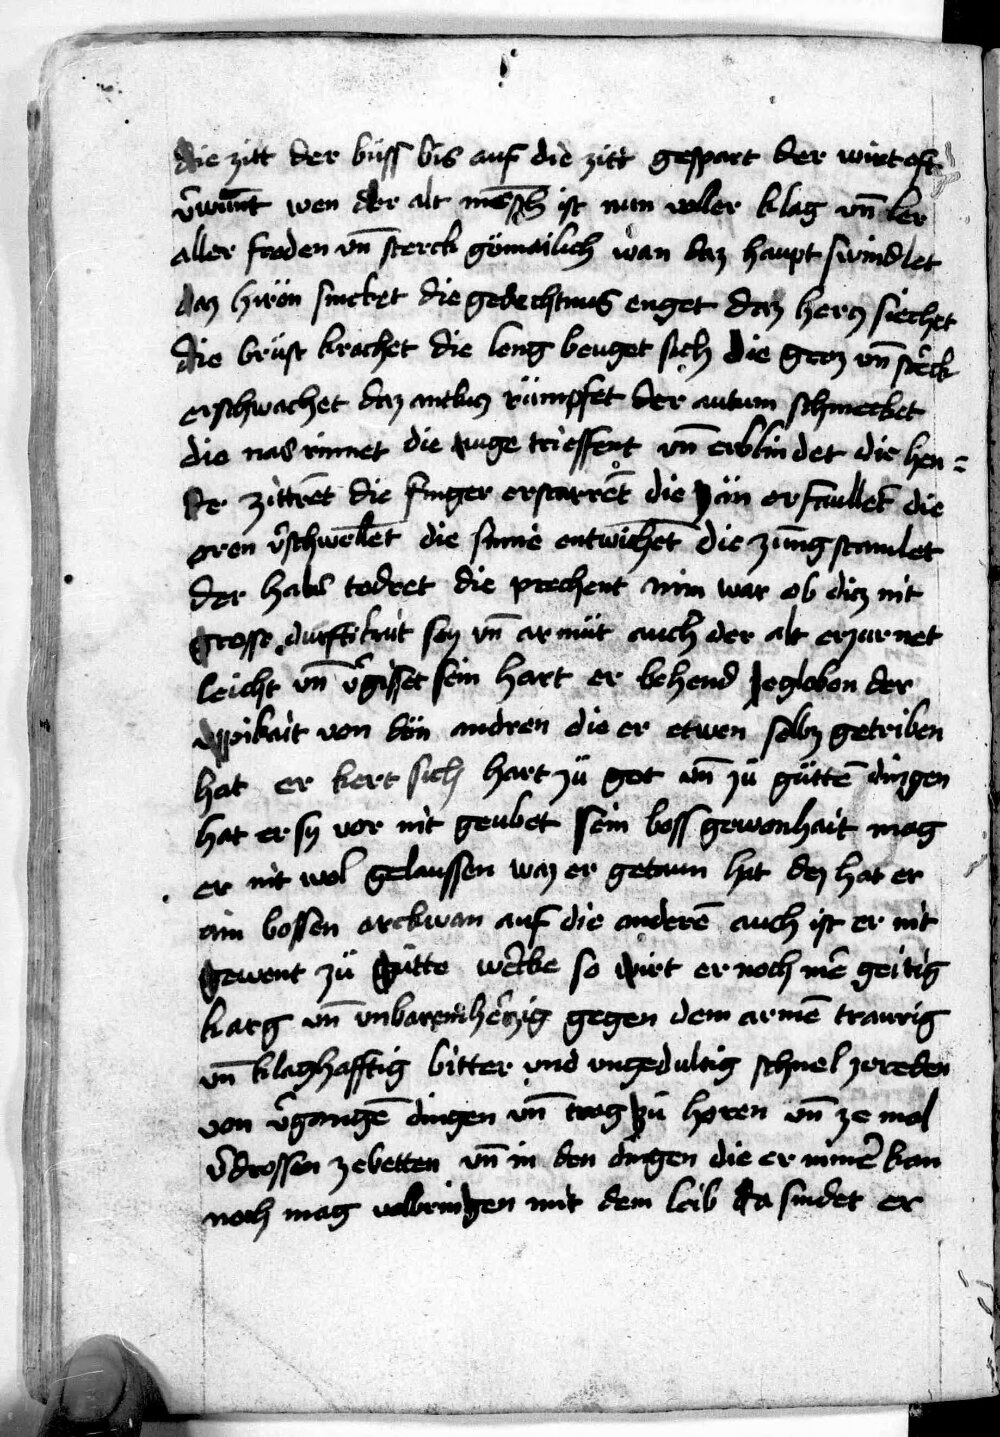 die zitt der büss bis auf die zitt gespart der wirt oft
v̄wūnt wen der alt mēsch ist nun voller klag vn̄ ler
aller froden vn̄ sterck gömailich wan daz haupt swindlet
daz hirön sincket die gedechtnus enget daz hercz siechet
die brüst krachet die leng beuget sich die grocz vn̄ stērck
erschwachet daz antlucz rümpfet der autum schmecket
die nas rinnet die auge trieffent vn̄ erblindet die hen=
de zittrēt die finger erstarrēt die zän erfaullet die
oren v̄schwellēt die sinne entwichēt die zūng stamlet
der hals todret die prechent nim war ob diz nit
grosse durftikait sey vn̄ armüt auch der alt erzurnet
leicht vn̄ v̄gisset sein hart er behend ze globen der
vppikait von dön andren die er etwen selbz getriben
hat er kert sich hart zü got vn̄ zü güttē dingen
hat er sy vor nit geubet sein boss gewonhait mag
er nit wol gelaussen waz er getaun hat dez hat er
ain bossen arckwan auf die anderē auch ist er nit
gewent zü gütte wercke so wirt er noch mē geitig
karg vn̄ vnbaremhērzig gegen dem armē traurig
vn̄ klaghafftig bitter vnd vngedultig schnel zereden
von v̄gangē dingen vn̄ trag zü horen vn̄ ze mol
v̄drossen zebetten vn̄ in den dingen die er nimē kan
noch mag volbringen mit dem leib da sindet er